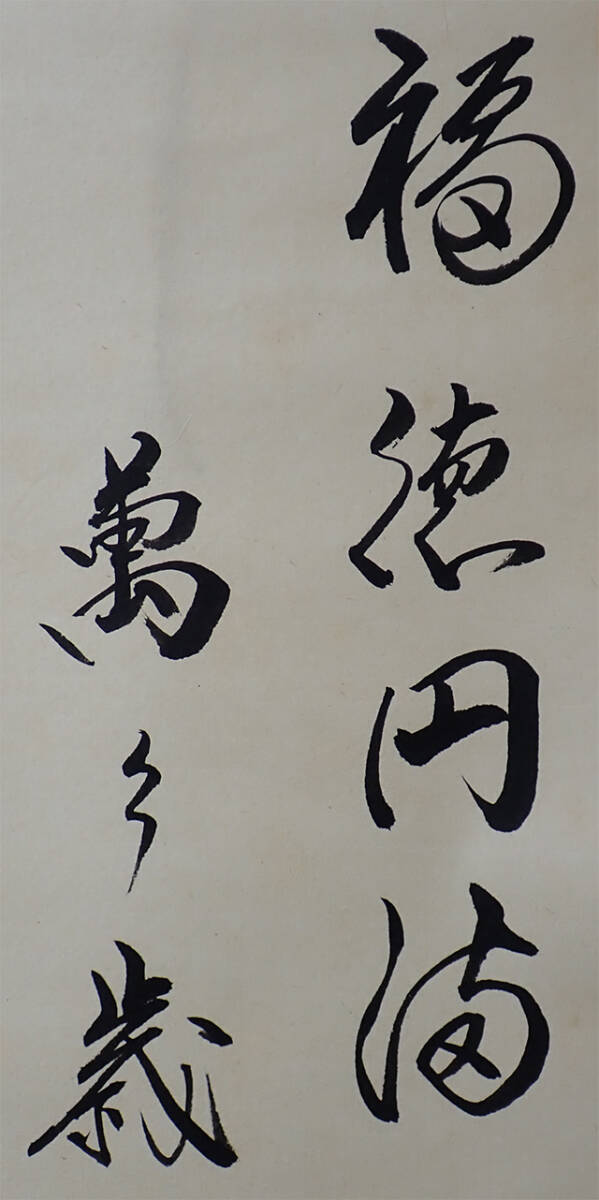 福徳円満
萬々歳